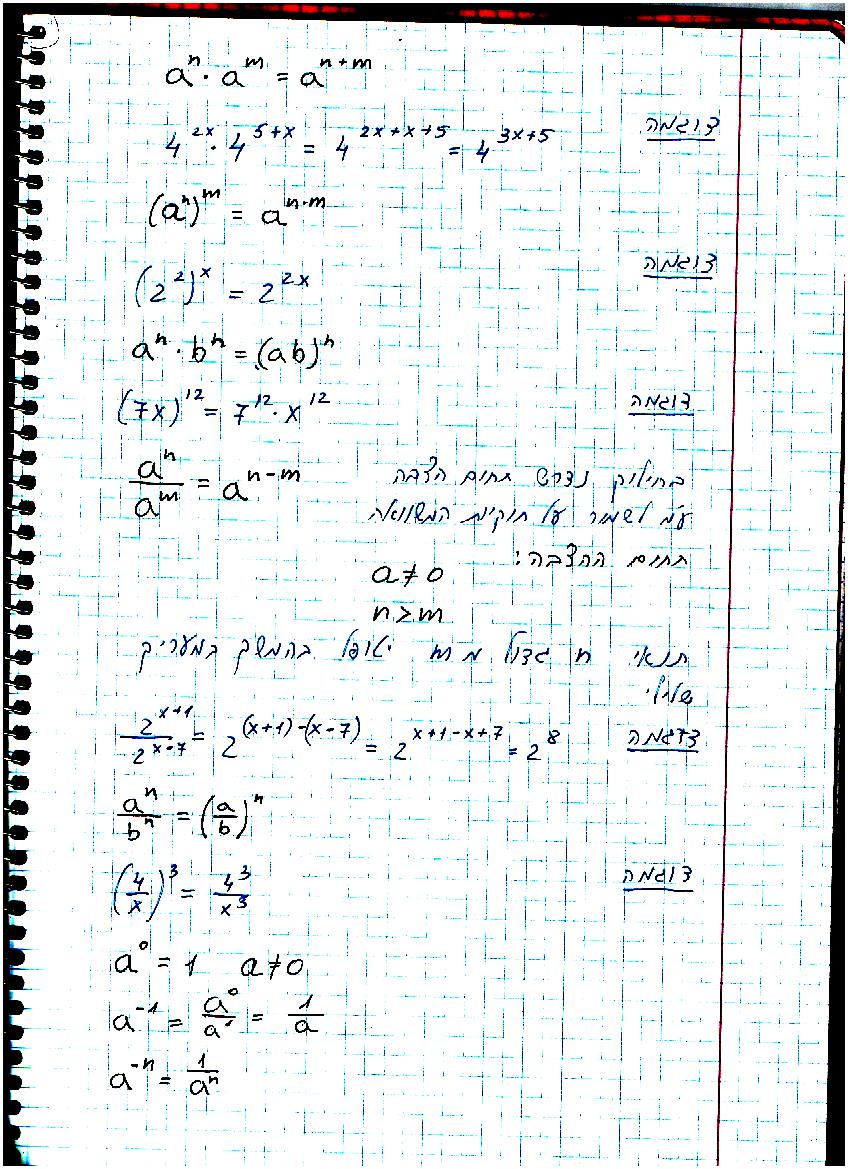 aⁿ · aᵐ = aⁿ⁺ᵐ
דוגמה
4^{2x} · 4^{5+x} = 4^{2x+x+5} = 4^{3x+5}
(aⁿ)ᵐ = a^{n·m}
דוגמה
(2²)^x = 2^{2x}
aⁿ · bⁿ = (ab)ⁿ
דוגמה
(7x)¹² = 7¹² · x¹²
aⁿ/aᵐ = aⁿ⁻ᵐ
בחילוק נדרש תחום הצבה
ע"מ לשמור על חוקיות המשוואה
תחום ההצבה:
a ≠ 0
n > m
תנאי n גדול מ m יטופל בהמשך במעריך
שלילי
דוגמה
2^{x+1}/2^{x-7} = 2^{(x+1)-(x-7)} = 2^{x+1-x+7} = 2⁸
aⁿ/bⁿ = (a/b)ⁿ
דוגמה
(4/x)³ = 4³/x³
a⁰ = 1 a ≠ 0
a⁻¹ = a⁰/a¹ = 1/a
a⁻ⁿ = 1/aⁿ